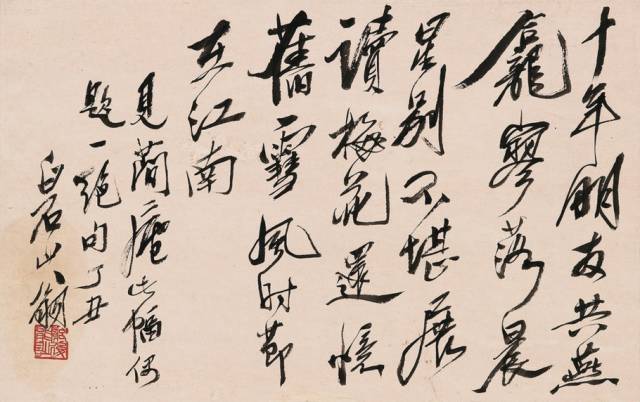 十年朋友共燕
龕寥落晨
星别不堪展
讀梅花還憶
舊雪風时節
在江南
見蕳庵此幅偶
題一絕句丁丑
白石山翁